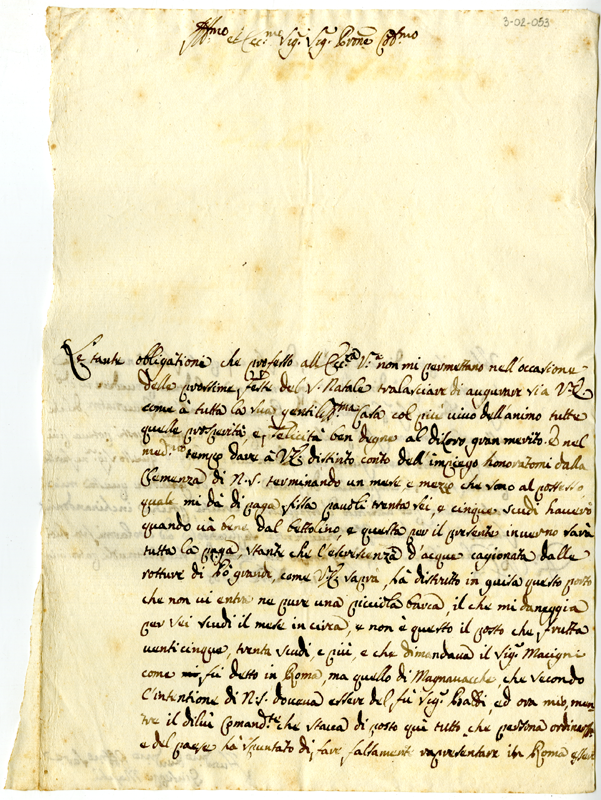 3-02-053
Ill.mo et Ecc.mo Sig.r Sig.r Pron.e Col.mo
Le tante obligationi che professo all'Ecc.za V.a non mi permettano nell'occasione
delle prossime feste del S. Natale tralasciare di augurare sì a V.E.
come à tutta la sua gentiliss.ma Casa col più vivo dell'animo tutte
quelle prosperità, e felicità ben degne al di loro gran merito. E nel
med.mo tempo dare à V.E. distinto conto dell'impiego honoratomi dalla
Clemenza di N.S. terminando un mese e mezo che sono al possesso, o
quale mi dà di paga fissa pauoli trenta sei, e cinque scudi hauerò
quando uà bene dal bettolino, e questa per il presente inuerno sarà
tutta la paga, stante che l'escrescenza d'acque cagionata dalle
rotture di Pò grande, come V.E. saprà, hà distrutto in guisa questo porto
che non ui entra ne pure una picciola barca, il che mi daneggia
per sei scudi il mese in circa, e non è questo il posto che frutta
uenticinque, trenta scudi, e più, e che dimandaua il Sig.r Macigni
come mi fù detto in Roma, ma quello di Magnauacche, che secondo
l'intentione di N.S. doueua essere del fù Sig.r Baldi, ed ora mio, men
tre il di lui Comand.te che staua di posto quì tutto che persona ordinaria
e del paese hà spuntato di fare falsamente rapresentare in Roma essere